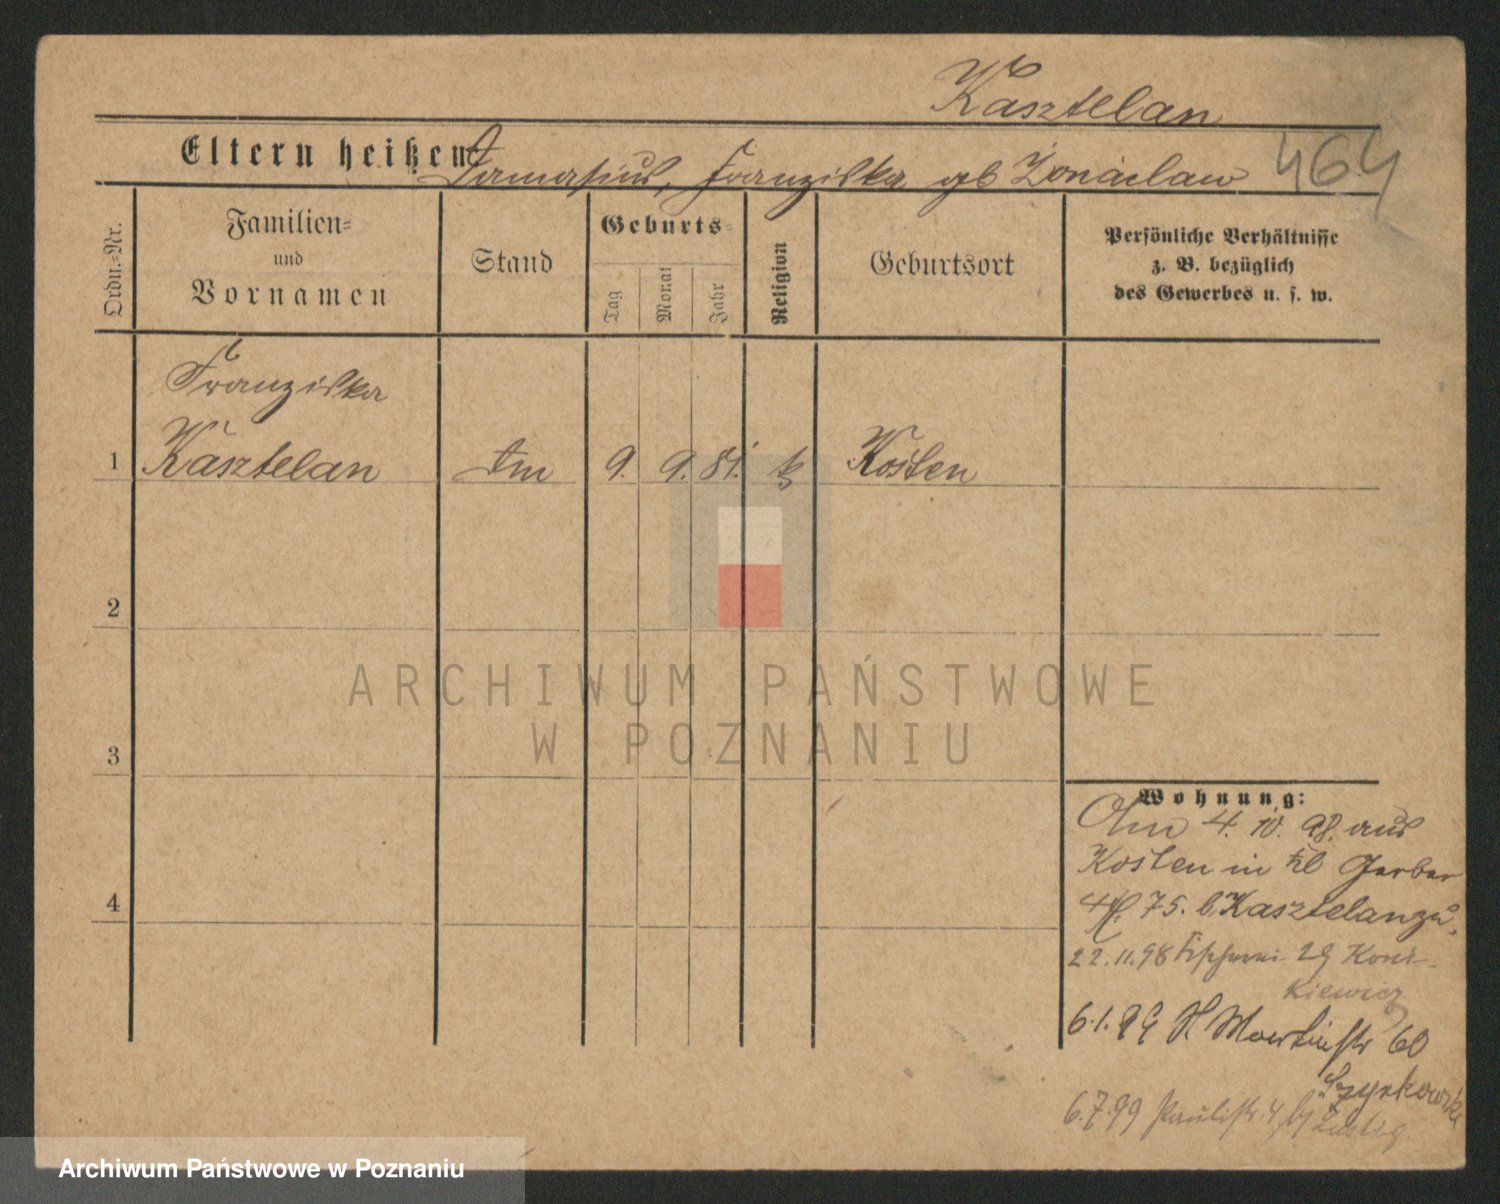 Kasztelan
Eltern heißen Damasius, Franziska gb
464
Ordn.-Nr.
Familien-
und
Vornamen
Stand
Geburts-
Tag
Monat
Jahr
Religion
Geburtsort
Persönliche Verhältnisse
z. B. bezüglich
des Gewerbes u. s. w.
Franziska
1 Kasztelan 9. 9. 81. k Kosten
2
3
4
ARCHIWUM PAŃSTWOWE
W POZNANIU
Wohnung:
4. 10. 98. aus
Kosten in kl Gerber
75. b. Kasztelan zu.
22.11.98 Fischerei 29 Koni-
kiewicz
6.1.99 H Martinstr 60
Szyrkowska
6.7.99 Paulistr. 4 Lustig
Archiwum Państwowe w Poznaniu